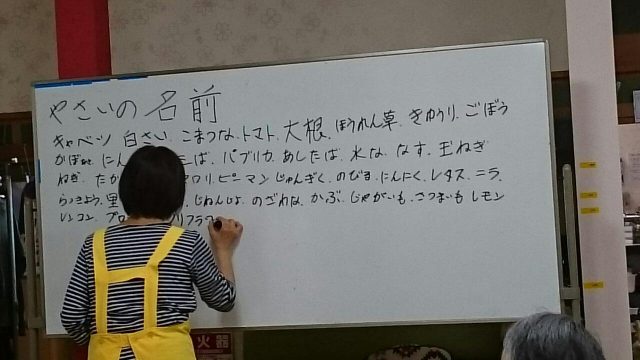 やさいの名前
キャベツ 白さい. こまつな. トマト. 大根. ほうれん草. きゅうり. ごぼう
かぼちゃ にん ば. パプリカ. あしたば. 水な. なす. 玉ねぎ
ねぎ. たか ロリ. ピーマン じゅんぎく. のびる. にんにく. レタス. ニラ.
らっきょう. 里 じねんじょ. のざわな. かぶ. じゃがいも. さつまいも レモン
レンコン. ブロ リフラワ
火器